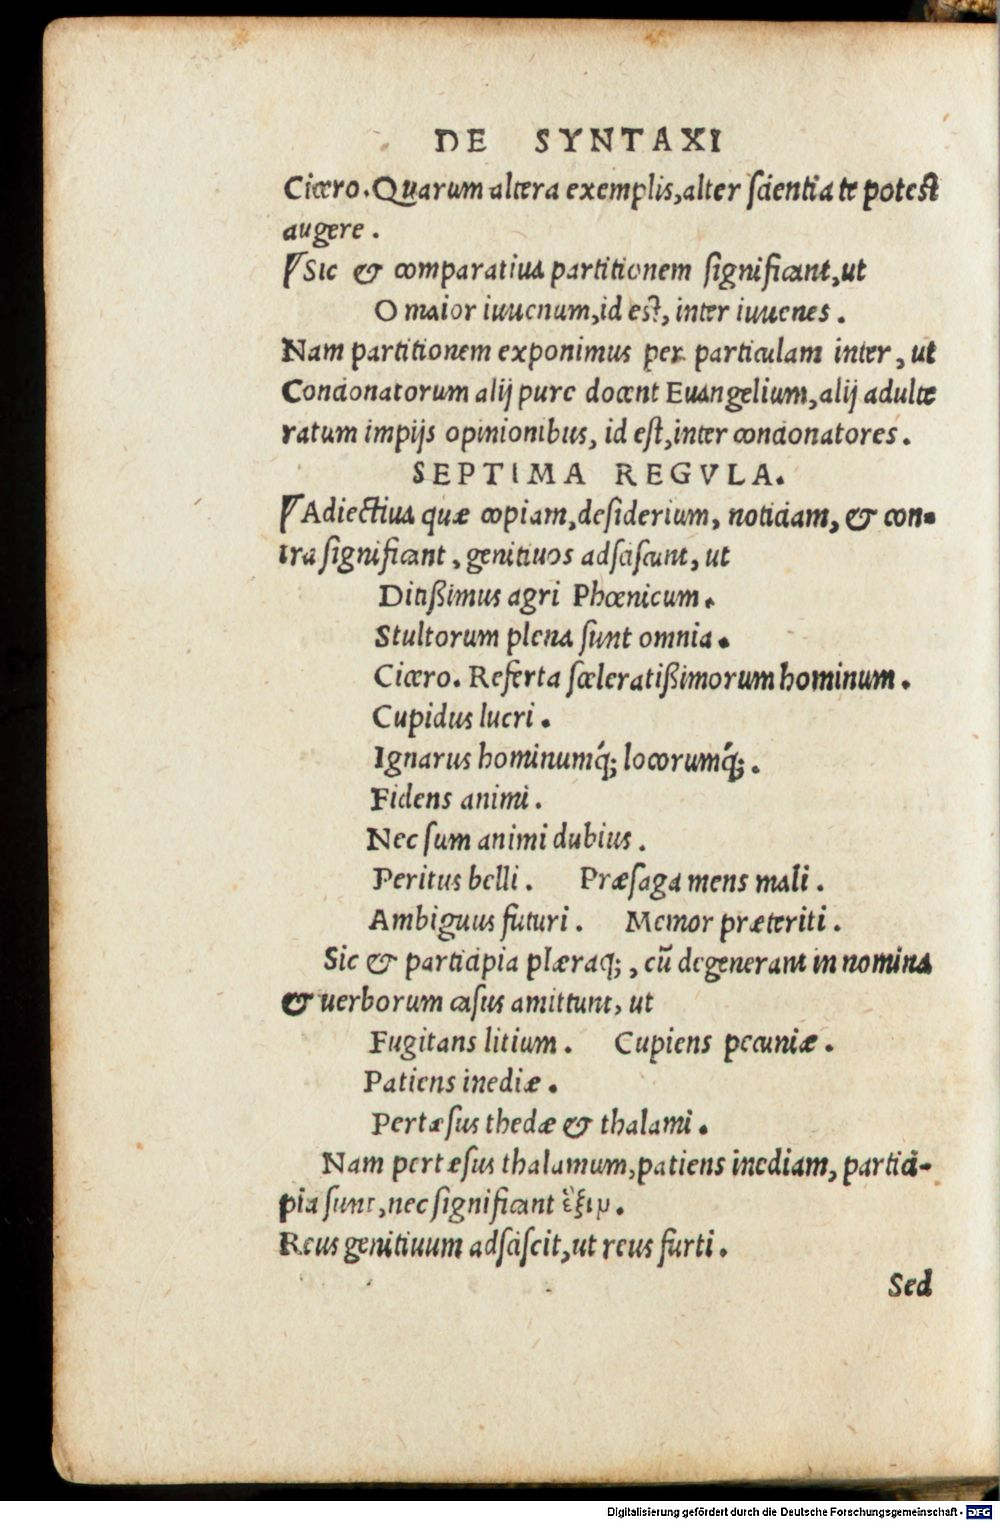 DE SYNTAXI
Cicero. Quarum altera exemplis, alter scientia te potest
augere.
Sic & comparatiua partitionem significant, ut
O maior iuuenum, id est, inter iuuenes.
Nam partitionem exponimus per particulam inter, ut
Concionatorum alij pure docent Euangelium, alij adulte
ratum impijs opinionibus, id est, inter concionatores.
SEPTIMA REGVLA.
Adiectiua quæ copiam, desiderium, noticiam, & con-
tra significant, genitiuos adsciscunt, ut
Ditißimus agri Phœnicum.
Stultorum plena sunt omnia.
Cicero. Referta sceleratißimorum hominum.
Cupidus lucri.
Ignarus hominumq́; locorumq́;.
Fidens animi.
Nec sum animi dubius.
Peritus belli. Præsaga mens mali.
Ambiguus futuri. Memor præteriti.
Sic & participia plæraq;, cū degenerant in nomina
& uerborum casus amittunt, ut
Fugitans litium. Cupiens pecuniæ.
Patiens inediæ.
Pertæsus thedæ & thalami.
Nam pertæsus thalamum, patiens inediam, partici-
pia sunt, nec significant ἕξιμ.
Reus genitiuum adsciscit, ut reus furti.
Sed
Digitalisierung gefördert durch die Deutsche Forschungsgemeinschaft - DFG